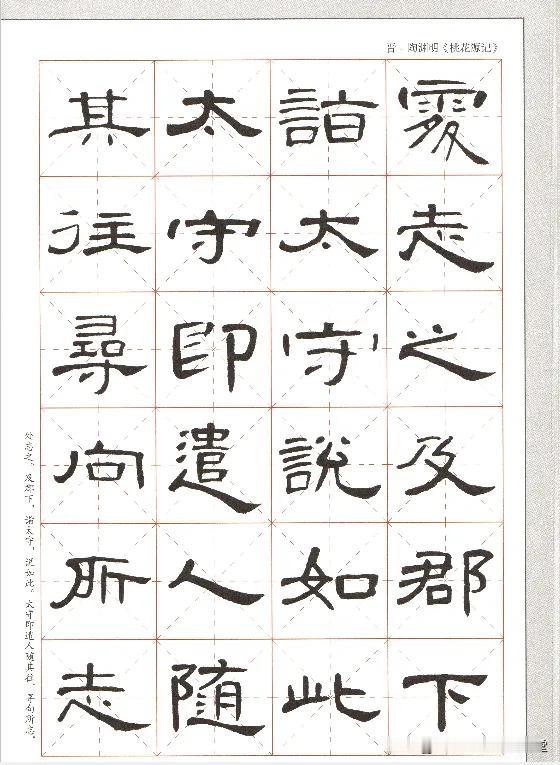 晋·陶渊明《桃花源记》
處志之及郡下
詣太守說如此
太守即遣人随
其往尋向所志
处志之。及郡下，诣太守，说如此。太守即遣人随其往，寻向所志，